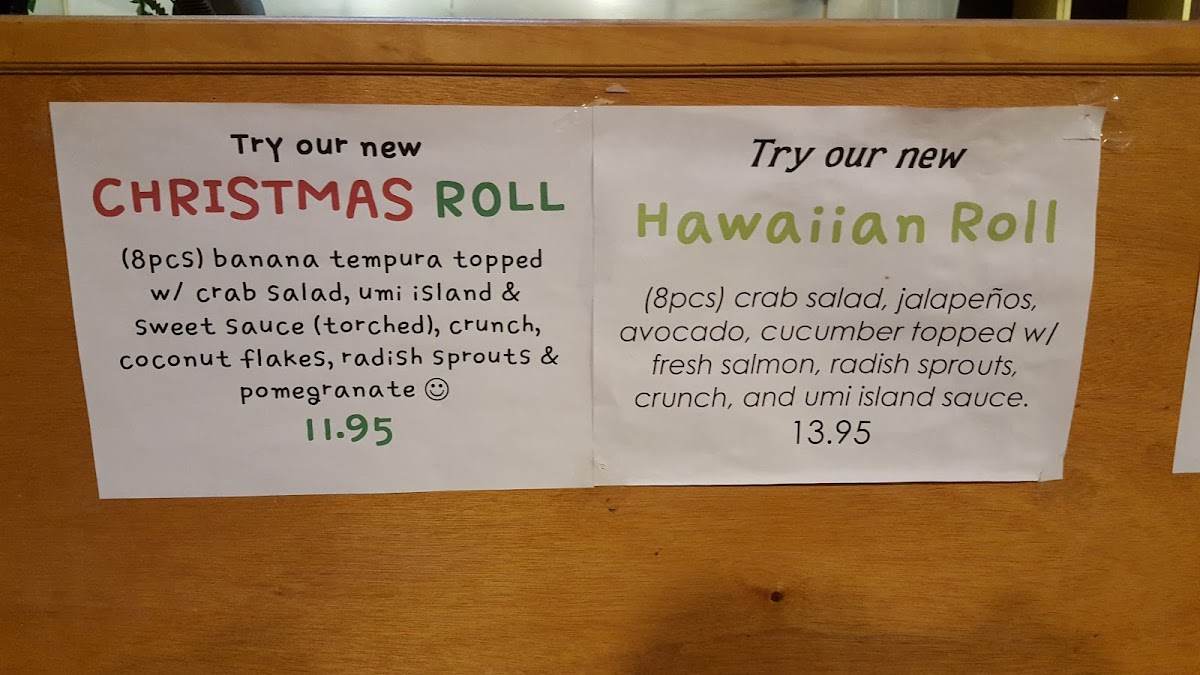 Try our new
CHRISTMAS ROLL
(8pcs) banana tempura topped
w/ crab salad, umi island &
sweet sauce (torched), crunch,
coconut flakes, radish sprouts &
pomegranate ☺
11.95
Try our new
Hawaiian Roll
(8pcs) crab salad, jalapeños,
avocado, cucumber topped w/
fresh salmon, radish sprouts,
crunch, and umi island sauce.
13.95